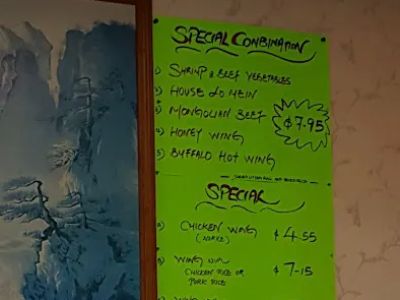 SPECIAL COMBINATION
1) SHRIMP & BEEF VEGETABLES
2) HOUSE LO MEIN
3) MONGOLIAN BEEF
$7.95
4) HONEY WING
5) BUFFALO HOT WING
SPECIAL
CHICKEN WING $4.55
WING
CHICKEN RICE OR $7.15
PORK RICE